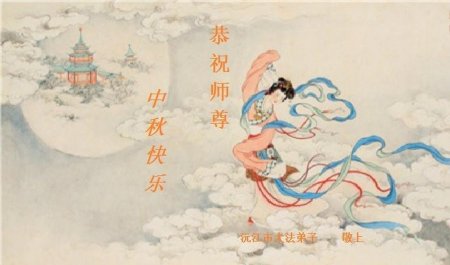 恭祝师尊
中秋快乐
沅江市大法弟子 敬上